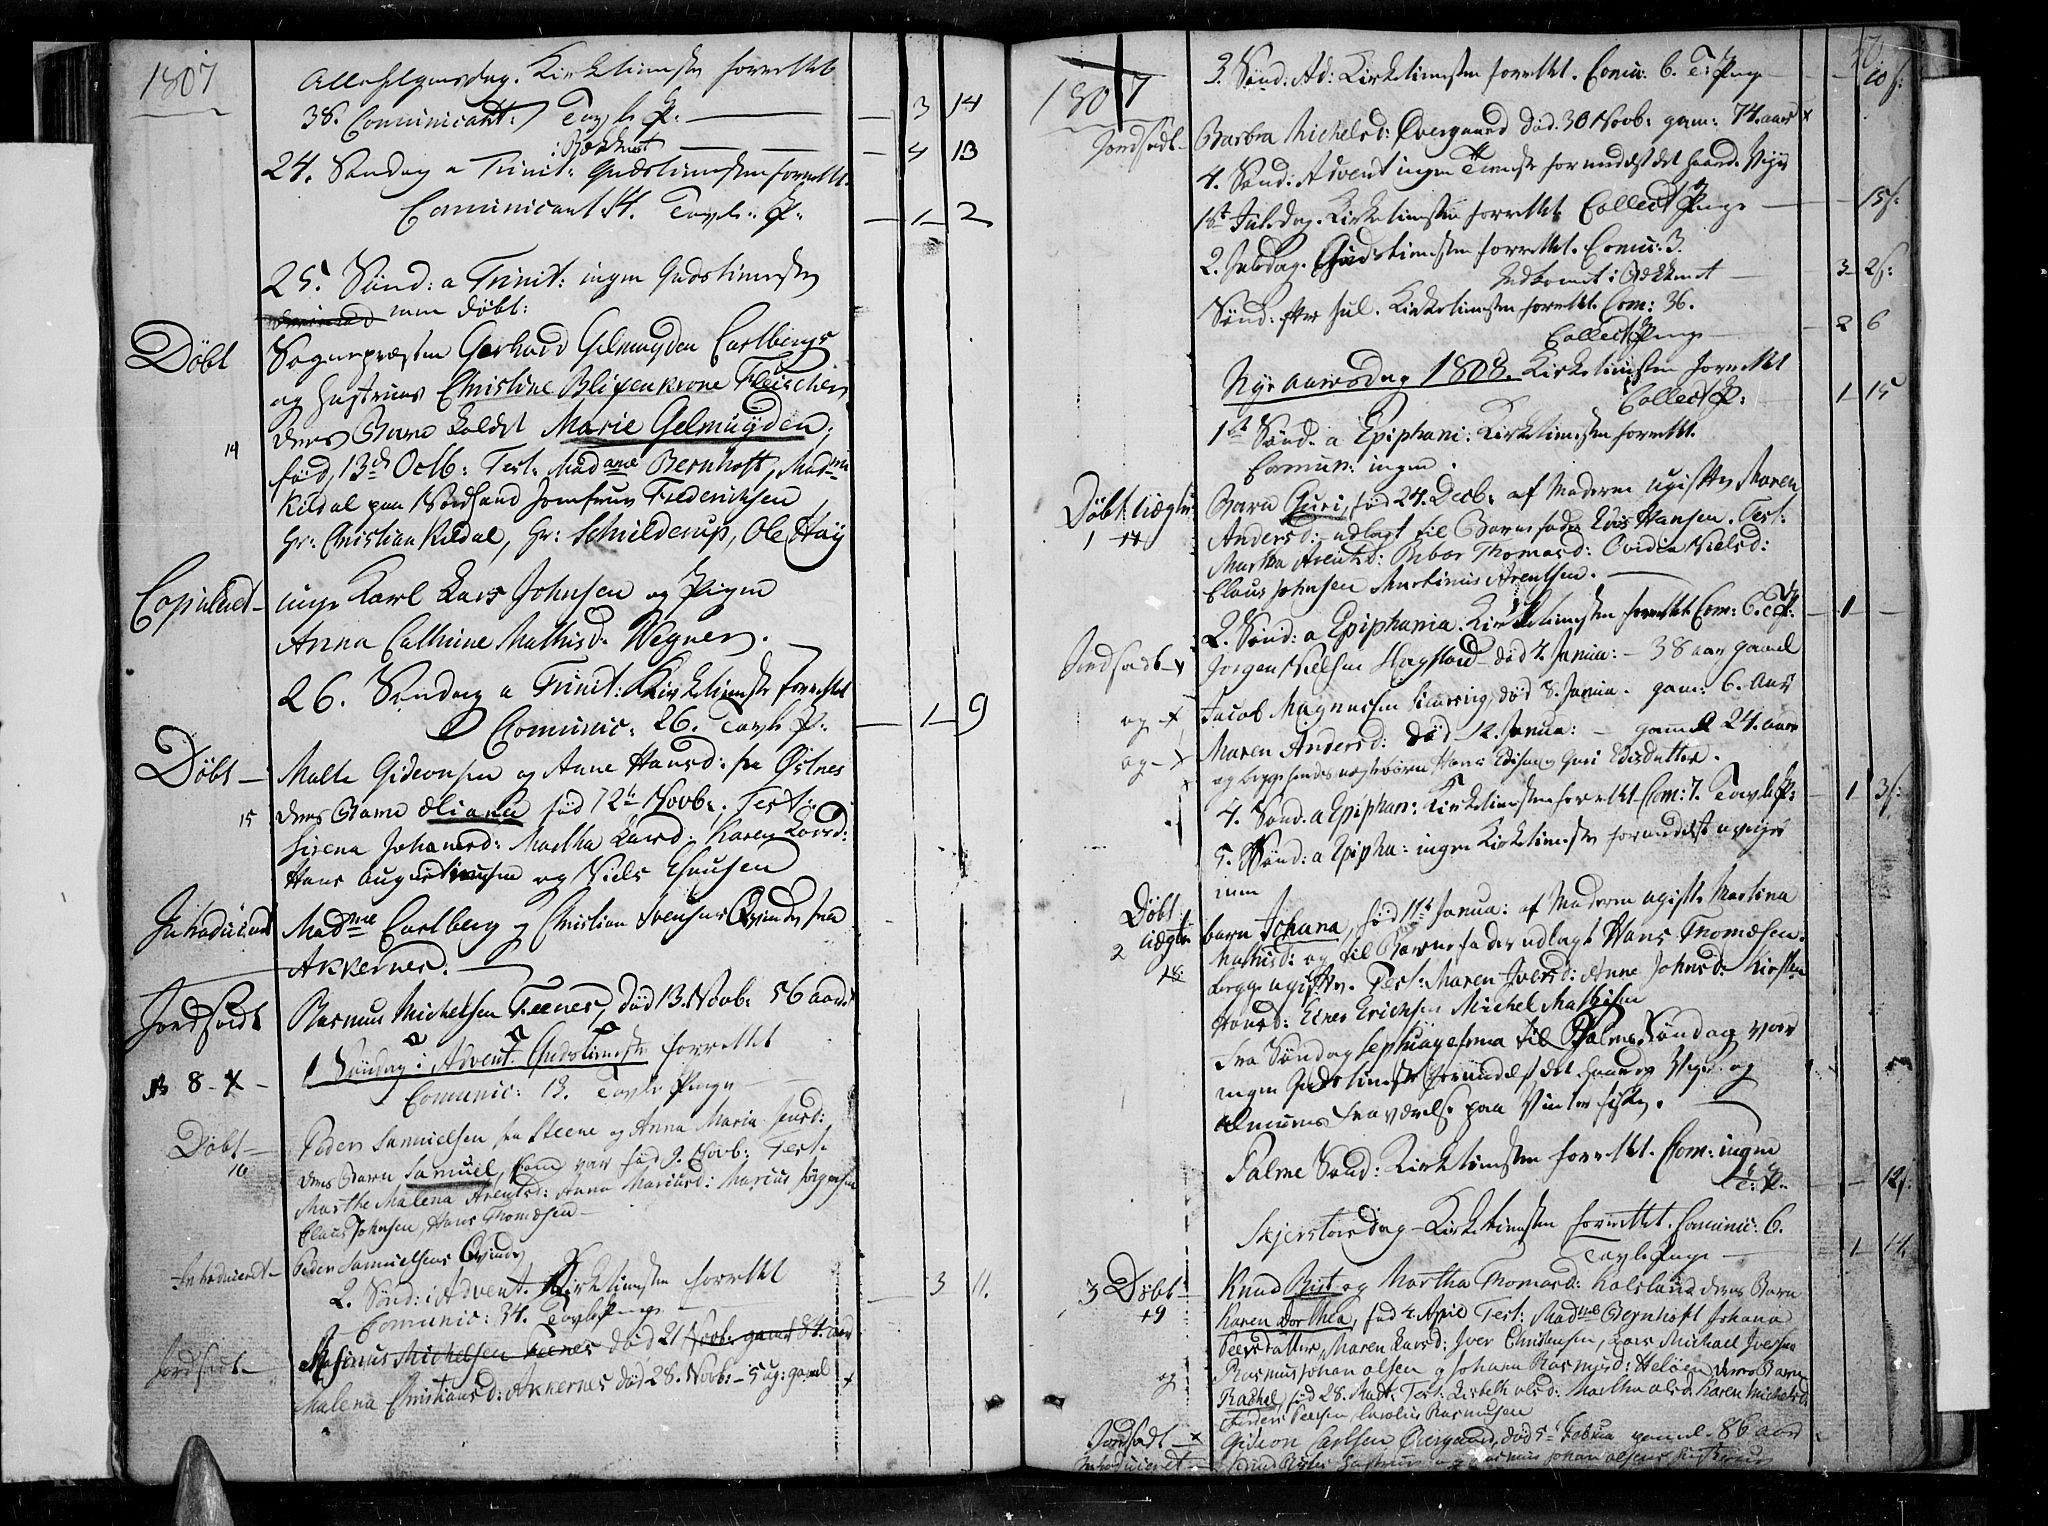 1807
Allehelgensdag. Kirketieneste forrettet
38. Comunicant. Tavle P: 3 14
i Bekkent 4 13
24. Søndag a Trinit: Gudstienesten forrettet.
Comunicant 14. Tavle P: 1 2
25. Sønd: a Trinit: ingen Gudstieneste
men døbt:
Døbt
Sognepræsten Gerhard Gelmuyden Carlbergs
og Hustrues Christine Blixenkrone Fleischer
deres Barn kaldet Marie Gelmuyden,
14
fød, 13de Octb: Test: Madame Bernhoft, Madme
Kildal paa Nordland Jomfrue Friderichsen
Hr: Christian Kildal, Hr: Schielderup, Ole Høy
Copuleret
unge Karl Lars Johnsen og Pigen
Anna Cathrine Mathisd: Wegner.
26. Søndag a Trinit: Kirketieneste forrettet
Comunic: 26. Tavle P. 1 9
Døbt
Malte Gideonsen og Anne Hansd: fra Østnes
15
deres Barn Eliana fød 12te Novb: Test:
Sirena Johansd: Martha Larsd: Karen Larsd:
Hans Augustinusen og Niels Hansen
Introduceret
Madme Carlberg og Christian Svensens Qvinde fra
Akkernes.
Jordfæst
Rasmus Michelsen Teenes, død 13. Novb: 56 aar
1 Søndag i Advent. Gudstieneste forrettet
8
Comunic: 13. Tavle Penge
Døbt
16
Peder Samuelsen fra Steene og Anna Maria Jensd:
deres Barn Samuel, som var fød 9. Novb: Test:
Marthe Malena Arentsd: Anna Mariusd: Marius Jørgensen
Claus Johnsen, Hans Thomæsen
Introduceret
Peder Samuelsens Qvinde
2. Sønd: i Advent. Kirketienesten forrettet
Comunic: 34. Tavle Penge 3 11.
Jordfæst
Rasmus Michelsen Teenes død 21 Novb: gamel 84. aar
Malena Christiansd: Akkernes død 28. Novb: 5 ug: gamel
1807
3. Sønd: Ad: Kirketienesten forrettet. Comu: 6. T: Penge 10 s:
Jordfæst
Barbra Michelsd: Øvergaard død. 30 Novb: gam: 74. aar
4. Sønd: Advent ingen Tieneste formedelst det haarde Veyr
1ste Juledag. Kirketienesten forrettet. Collect Penge 15 s:
2. Juledag. Gudstienesten forrettet. Comu: 3.
Indkomet i Bekkent 3 2 s:
Sønd: efter Jul. Kirketienesten forrettet. Com: 36.
Collect Penge 2 6
Nye aarsdag 1808. Kirketienesten forrettet
Collect P: 1 15
1ste Sønd. a Epiphani: Kirketienesten forrettet.
Comun: ingen.
Døbt uægte
1
Barn Guri, fød 24. Decb: af Moderen ugift Maren
Andersd: udlagt til Barnefader Hansen. Test:
Martha Arentsd: Thomasd: Ovidia Nielsd:
Claus Johnsen Martinus Arentsen.
2. Sønd: a Epiphania. Kirketienesten forrettet Com: 6. T: P: 1
Jordfæst
Jørgen Nielsen Hagstad død 4. Janua: 38 aar gamel
og
Jacob Magnussen død 8. Janua. gam: 6. Aar
og
Maren Andersd: død 12. Janua: gamel 24. aar
4. Sønd. a Epiphan: Kirketienesten forrettet Com: 7. Tavle P: 1 3 s:
5. Sønd: a Epipha: ingen Kirketieneste formedelst uveyr
men
Døbt
uægte
2
18
barn Johana, fød 11te Janua: af Moderen ugift Martina
Mathisd: og til Barnefader udlagt Hans Thomæsen.
begge ugifte. Test: Maren Iversd: Anne Johnsd: Kirsten
Hansd: Erichsen Michel Mathisen
Fra Søndag Septuagesima til Palme Søndag var
ingen Gudstieneste formedelst det haarde Veyr og
almuens fraværelse paa Vinter fisket.
Palme Sønd: Kirketienesten forrettet. Com: ingen
T: P. 12 s:
Skjertorsdag Kirketienesten forrettet. Comunic: 6.
Tavle Penge 1 11.
3 Døbt
19
Knud Bist og Martha Thomasd: deres Barn
Karen Dorthea, fød 4. April Test: Madme Bernhoft Johana
Peersdatter, Maren Larsd: Iver Christensen, Lars Michael Iversen
og
Rasmus Johan Olsen og Johana Rasmusd: deres Barn
Rachel, fød 28. Mart. Test: Lisbeth Olsd: Martha Olsd: Karen Michelsd:
Peersen Carolus Rasmusen
Jordfæst
Gideon Carlsen Øvergaard, død 5te Februa gamel 86 aar
Introduceret